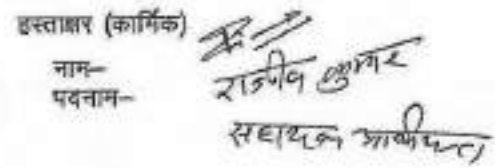 हस्ताक्षर (कार्मिक)
नाम– राजीव कुमार
पदनाम– सहायक अभियन्ता